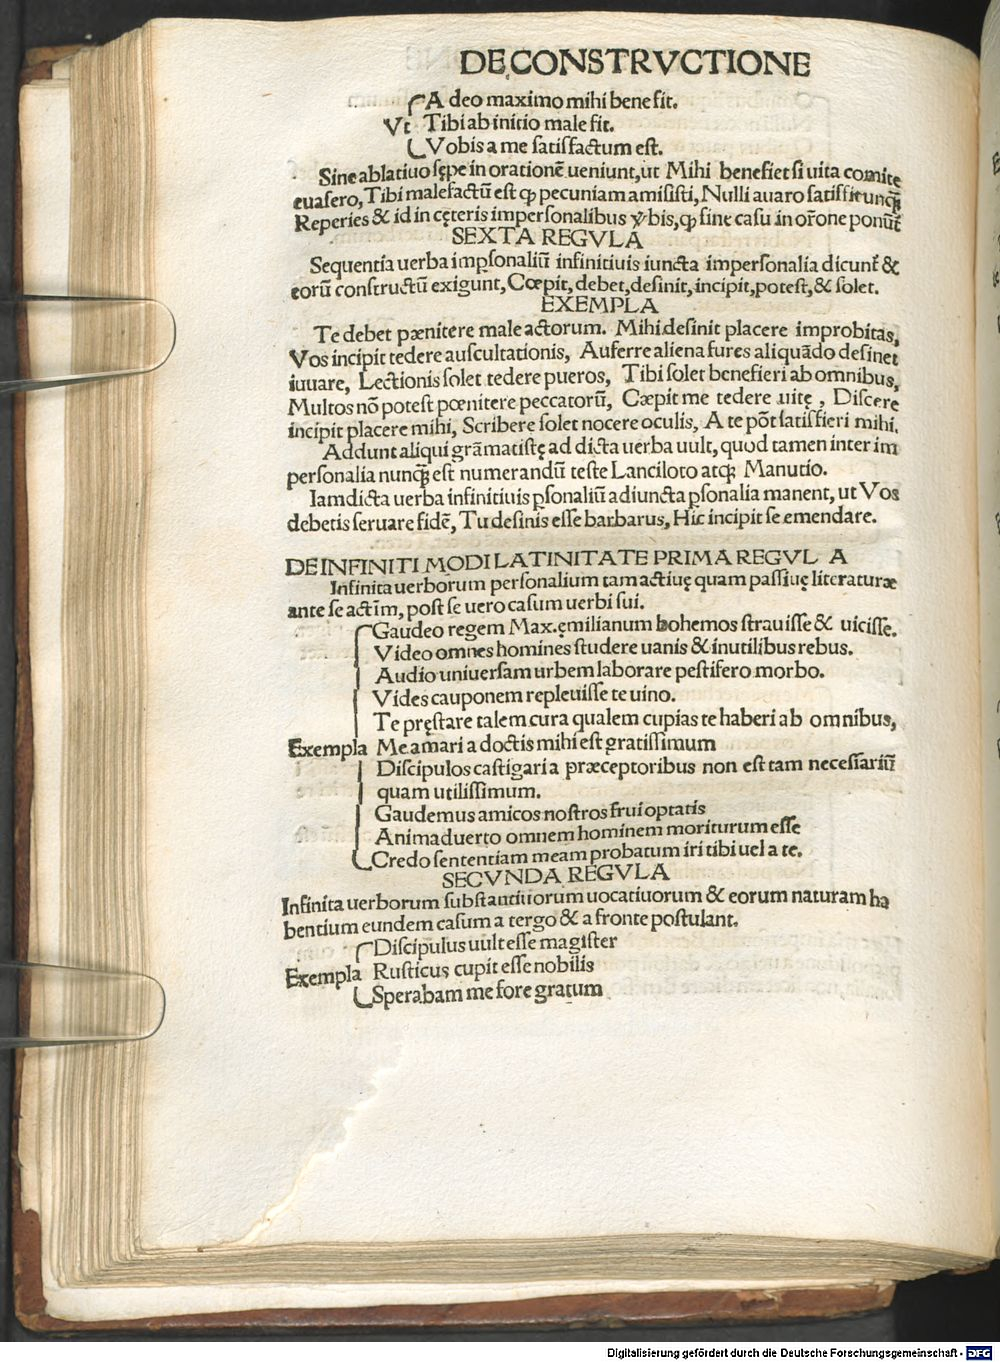 DE CONSTRVCTIONE
A deo maximo mihi bene fit.
Vt Tibi ab initio male fit.
Vobis a me satisfactum est.
Sine ablatiuo sępe in orationē ueniunt, ut Mihi benefiet si uita comite
euasero, Tibi malefactū est ꝙ pecuniam amisisti, Nulli auaro satisfit unqꝫ
Reperies & id in cęteris impersonalibus v̾bis, ꝙ sine casu in or̄one ponūt̄
SEXTA REGVLA
Sequentia uerba imp̱sonaliū infinitiuis iuncta impersonalia dicunt̄ &
eorū constructū exigunt, Cœpit, debet, desinit, incipit, potest, & solet.
EXEMPLA
Te debet pænitere male actorum. Mihi desinit placere improbitas,
Vos incipit tedere auscultationis, Auferre aliena fures aliquādo desinet
iuuare, Lectionis solet tedere pueros, Tibi solet benefieri ab omnibus,
Multos nō potest pœnitere peccatorū, Cæpit me tedere uitę, Discere
incipit placere mihi, Scribere solet nocere oculis, A te pōt satisfieri mihi.
Addunt aliqui grāmatistę ad dicta uerba uult, quod tamen inter im
personalia nunqꝫ est numerandū teste Lanciloto atqꝫ Manutio.
Iamdicta uerba infinitiuis ꝑsonaliū adiuncta ꝑsonalia manent, ut Vos
debetis seruare fidē, Tu desinis esse barbarus, Hic incipit se emendare.
DE INFINITI MODI LATINITATE PRIMA REGVLA
Infinita uerborum personalium tam actiuę quam passiuę literaturæ
ante se actīm, post se uero casum uerbi sui.
Gaudeo regem Max. ęmilianum bohemos strauisse & uicisse.
Video omnes homines studere uanis & inutilibus rebus.
Audio uniuersam urbem laborare pestifero morbo.
Vides cauponem repleuisse te uino.
Te pręstare talem cura qualem cupias te haberi ab omnibus,
Exempla Me amari a doctis mihi est gratissimum
Discipulos castigari a præceptoribus non est tam necessariū
quam utilissimum.
Gaudemus amicos nostros frui optatis
Animaduerto omnem hominem moriturum esse
Credo sententiam meam probatum iri tibi uel a te.
SECVNDA REGVLA
Infinita uerborum substantiuorum uocatiuorum & eorum naturam ha
bentium eundem casum a tergo & a fronte postulant.
Discipulus uult esse magister
Exempla Rusticus cupit esse nobilis
Sperabam me fore gratum
Digitalisierung gefördert durch die Deutsche Forschungsgemeinschaft - DFG